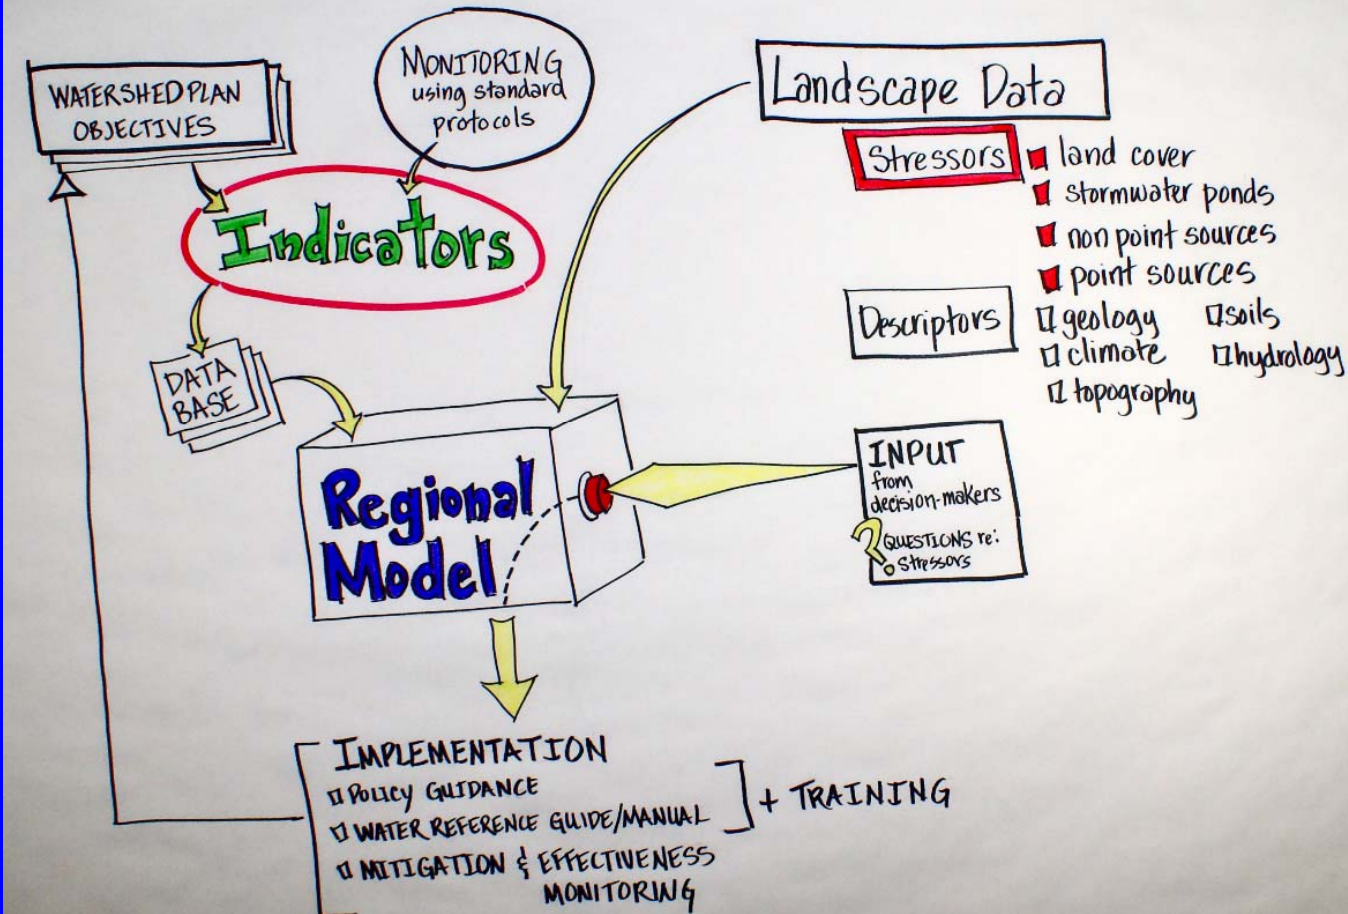 WATERSHED PLAN
OBJECTIVES
MONITORING
using standard
protocols
Indicators
DATA
BASE
Landscape Data
Stressors
land cover
stormwater ponds
non point sources
point sources
Descriptors
geology
soils
climate
hydrology
topography
INPUT
from
decision-makers
? QUESTIONS re:
stressors
Regional
Model
IMPLEMENTATION
POLICY GUIDANCE
WATER REFERENCE GUIDE/MANUAL
+ TRAINING
MITIGATION & EFFECTIVENESS
MONITORING